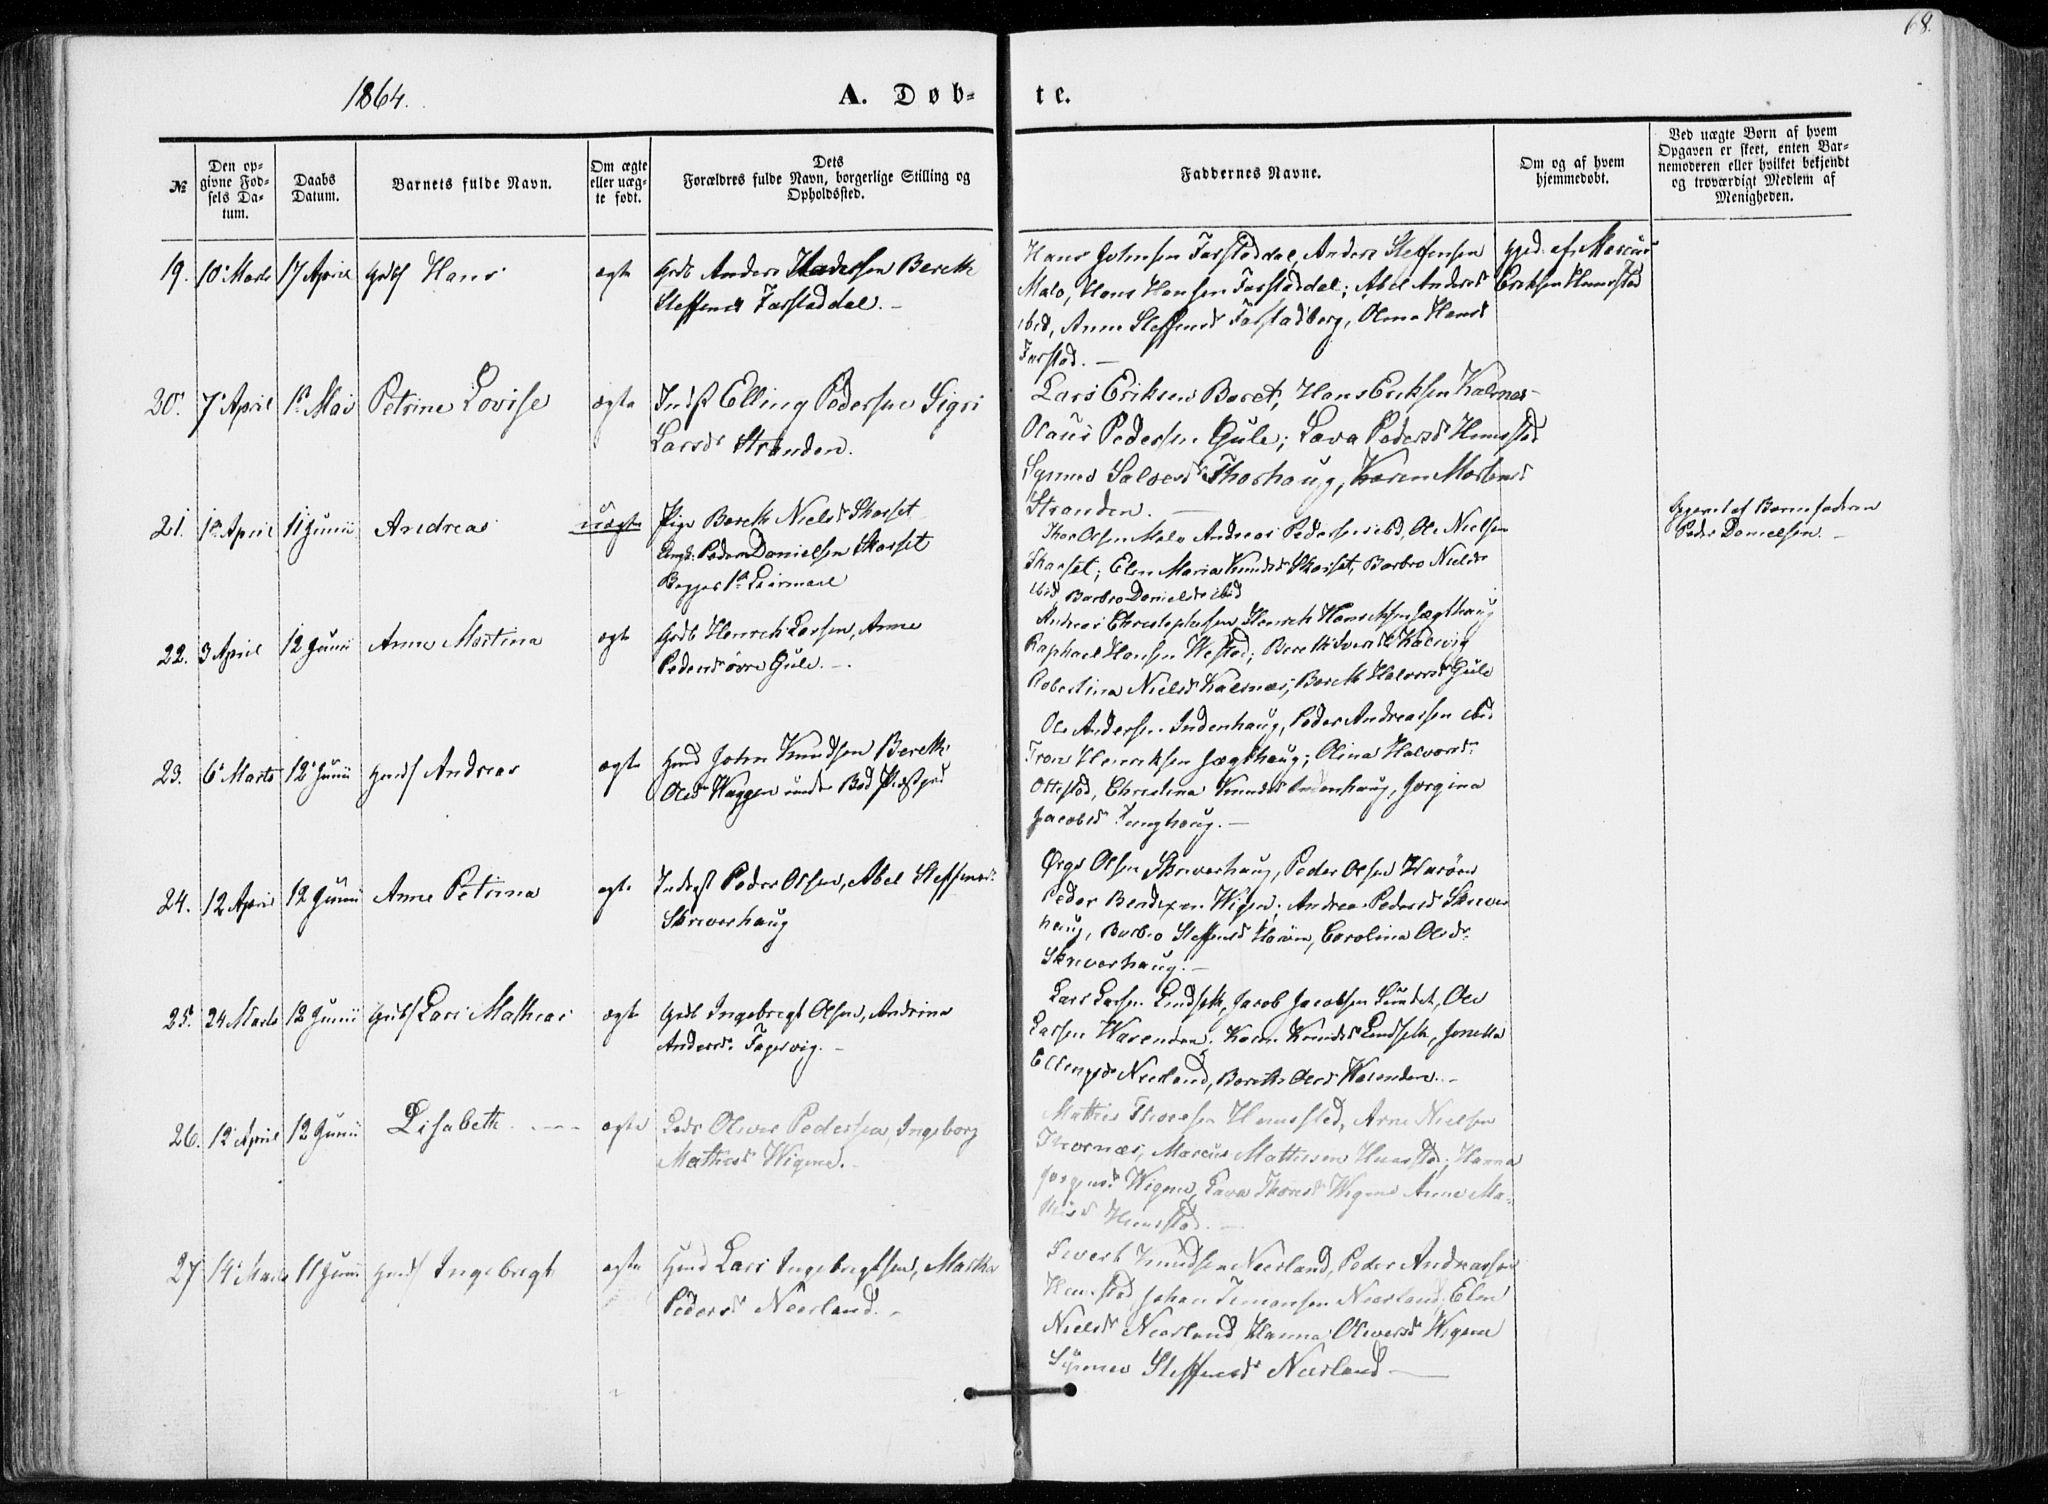 68.
1864.
A. Døb-
te.
№
Den op-
givne Fød-
sels Da-
tum.
Daabs
Datum.
Barnets fulde Navn.
Om ægte
eller uæg-
te født.
Dets
Forældres fulde Navn, borgerlige Stilling og
Opholdssted.
Faddernes Navne.
Om og af hvem
hjemmedøbt.
Ved uægte Børn af hvem
Opgaven er skeet, enten Bar-
nemoderen eller hvilket bekjendt
og troværdigt Medlem af
Menigheden.
19. 10 Marts 17 April Hans ægte Grdb Anders Bereth
Steffensd Farstaddal. -
Hans Johnsen Farstaddal, Anders Steffensen
Malo, Hans Hansen Farstaddal; Abel Andersd
ibid, Anne Steffensd Farstadberg, Olina Hansd
Farstad. -
af Marcus
Eriksen Hunstad
20. 7 April 1 Mai Petrine Lovise ægte Indst Elling Pedersen Sigri
Larsdr Stranden.
Lars Eriksen Boret, Hans Eriksen Kalsnes
Olaus Pedersen Gule; Lava Pedersd Hunstad
Synnev Thorhaug, Karen Mortensd
Stranden. -
21. 1 April 11 Junii Andreas uægte Pige Bereth Nielsd Skarset
Peder Danielsen Skarset
Begges 1ste Leiermaal
Thor Olsen Malo Andreas Pedersen ibid, Ole Nielsen
Skarset; Elen Maria Knudsd Skarset, Barbro Nielsdr
ibid, Barbro Danielsdr ibid
Opgivet af Barnefaderen
Peder Danielsen. -
22. 3 April 12 Junii Anne Martina ægte Grdb Henrich Larsen, Anne
Pedersd øvre Gule. -
Andreas Christophersen, Henrich Hansen Jægthaug
Raphael Hansen Westad; Bereth Kalsvig
Robertina Nielsd Kalsnæs, Bereth Halvorsd Gule
23. 6 Marts 12 Junii Andreas ægte Hmd John Knudsen Bereth
Olsdr Waagen under Bod Præstgrd
Ole Andersen Indenhaug, Peder Andreassen ibid
Tron Henriksen Jægthaug; Olina Halvorsdr
Ottestad, Christina Knudsd Indenhaug, Jørgina
Jacobsd Tunghaug. -
24. 12 April 12 Junii Anne Petrina ægte Inderst Peder Olsen, Abel Steffensdr
Skriverhaug
Olsen Skriverhaug, Peder Olsen Harøen
Peder Bendixen Wigen; Andrea Pedersd Skriver
haug, Barbro Steffensd Harøen, Carolina Olsdr
Skriverhaug. -
25. 24 Marts 12 Junii Lars Mathias ægte Grdb Ingebrigt Olsen, Andrina
Andersdr Fagervig. -
Lars Larsen Lindseth, Jacob Jacobsen Sundet, Ole
Larsen Warenden. Karen Knudsdr Lindseth, Jonetta
Ellingsdr Neerland, Bereth Olsd Warenden. -
26. 12 April 12 Junii Lisabeth ægte Oliver Pedersen, Ingeborg
Mathisd Wigene. -
Mathis Thoresen Hunstad, Arne Nielsen
Thornæs, Marcus Mathisen Hunstad; Hanna
Jørgensd Wigene, Lava Thoresd Wigene Anne Ma-
thisd Hunstad. -
27 14 Marts 11 Junii Ingebrigt ægte Hmd Lars Ingebrigtsen, Martha
Pedersd Neerland. -
Sivert Knudsen Neerland, Peder Andreassen
Hunstad, Johan Neerland; Elen
Nielsd Neerland, Hanna Oliversd Wigene
Synnev Steffensdr Neerland -